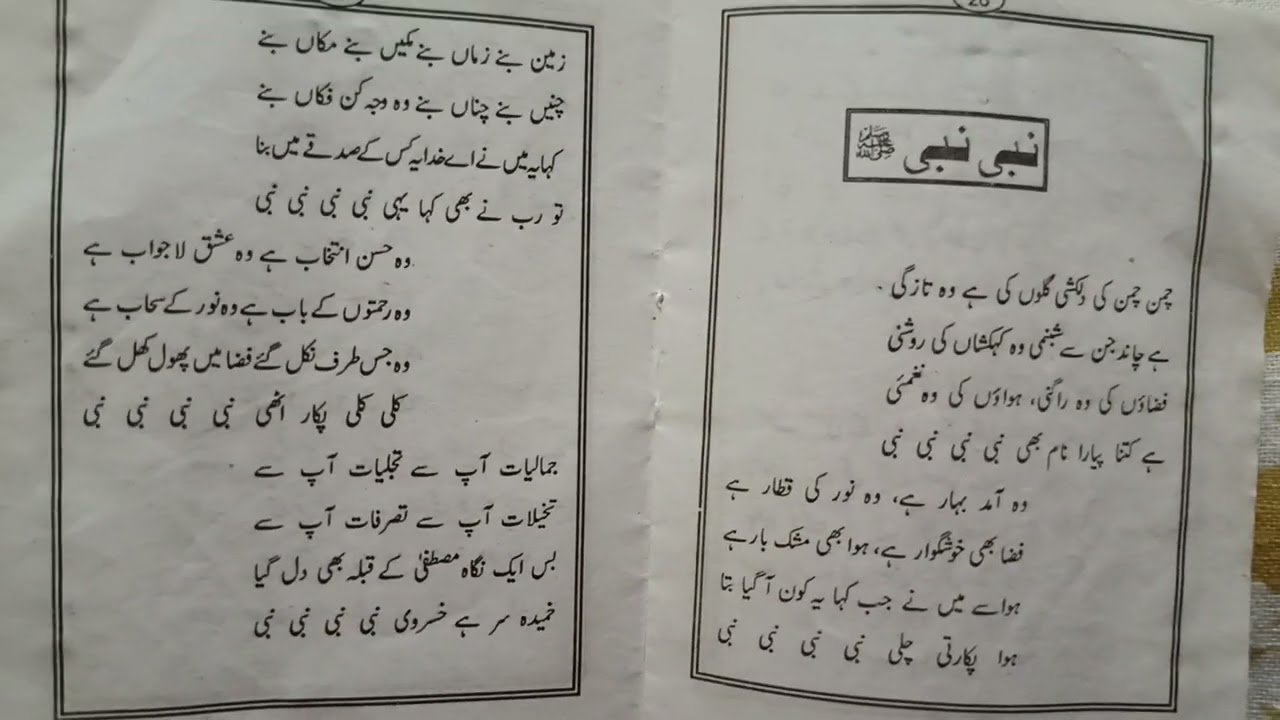 26
نبی نبی ﷺ
چمن چمن کی دلکشی گلوں کی ہے وہ تازگی
ہے چاند جن سے شبنمی وہ کہکشاں کی روشنی
فضاؤں کی وہ راگنی، ہواؤں کی وہ نغمگی
ہے کتنا پیارا نام بھی نبی نبی نبی نبی
وہ آمد بہار ہے، وہ نور کی قطار ہے
فضا بھی خوشگوار ہے، ہوا بھی مشک بار ہے
ہوا سے میں نے جب کہا یہ کون آ گیا بتا
ہوا پکارتی چلی نبی نبی نبی نبی
زمین بنے زماں بنے مکیں بنے مکاں بنے
چنیں بنے چناں بنے وہ وجہ کن فکاں بنے
کہا یہ میں نے اے خدا یہ کس کے صدقے میں بنا
تو رب نے بھی کہا یہی نبی نبی نبی نبی
وہ حسن انتخاب ہے وہ عشق لا جواب ہے
وہ رحمتوں کے باب ہے وہ نور کے سحاب ہے
وہ جس طرف نکل گئے فضا میں پھول کھل گئے
کلی کلی پکار اٹھی نبی نبی نبی نبی
جمالیات آپ سے تجلیات آپ سے
تخیلات آپ سے تصرفات آپ سے
بس ایک نگاہ مصطفیٰ کے قبلہ بھی دل گیا
خمیدہ سر ہے خسروی نبی نبی نبی نبی